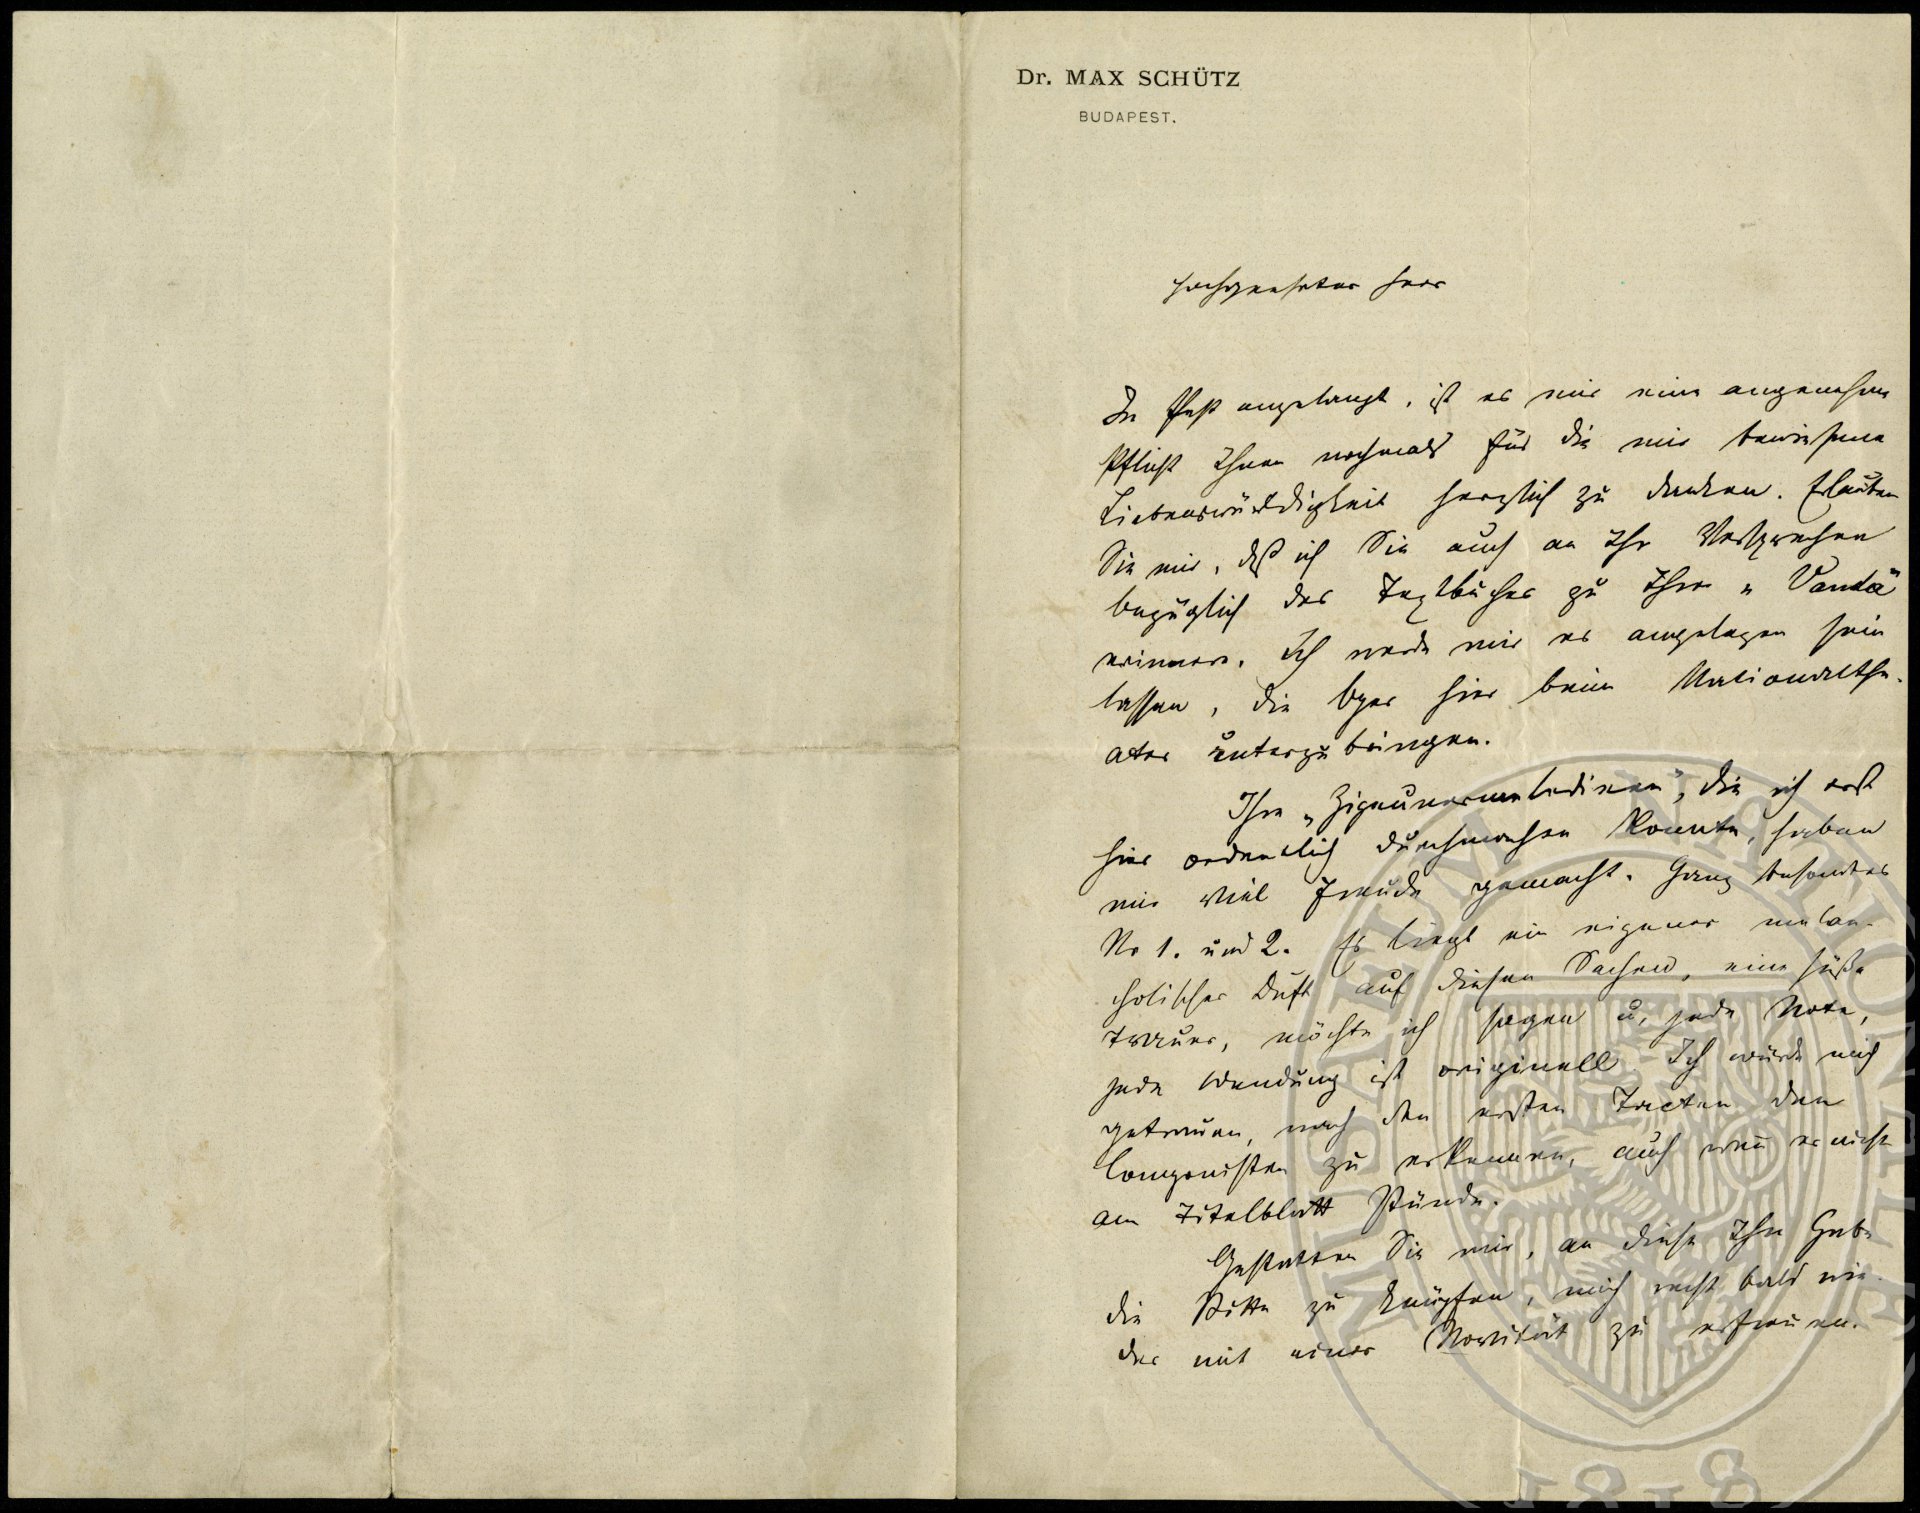 Dr. MAX SCHÜTZ
BUDAPEST.
Hochgeehrter Herr
In Pest angelangt, ist es mir eine angenehme
Pflicht Ihnen nochmals für die mir bewiesene
Liebenswürdigkeit herzlich zu danken. Erlauben
Sie mir, daß ich Sie auch an Ihr Versprechen
bezüglich des Textbuches zu Ihrer „Vanda"
erinnere. Ich werde mir es angelegen sein
lassen, die Oper hier beim Nationalthe-
ater unterzubringen.
Ihre „Zigeunermelodieen", die ich erst
hier ordentlich durchsehen konnte, haben
mir viel Freude gemacht. Ganz besonders
No 1. und 2. Es liegt ein eigener melan-
cholischer Duft auf diesen Sachen, eine süße
Trauer, möchte ich sagen u, jede Note,
jede Wendung ist originell. Ich würde mich
getrauen, nach den ersten Tacten den
Componisten zu erkennen, auch wen̄ er nicht
am Titelblatt stünde.
Gestatten Sie mir, an diese Ihre Gabe
die Bitte zu knüpfen, mich recht bald wie-
der mit einer Novität zu erfreuen.
MUSEUM NATIONALE
1818